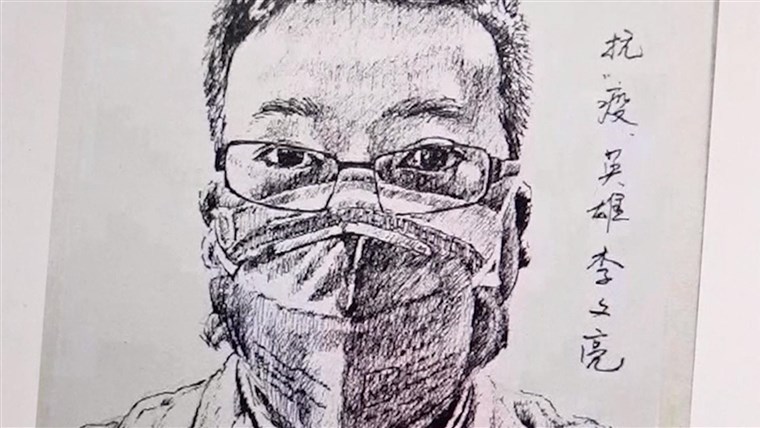 抗"疫"英雄李文亮